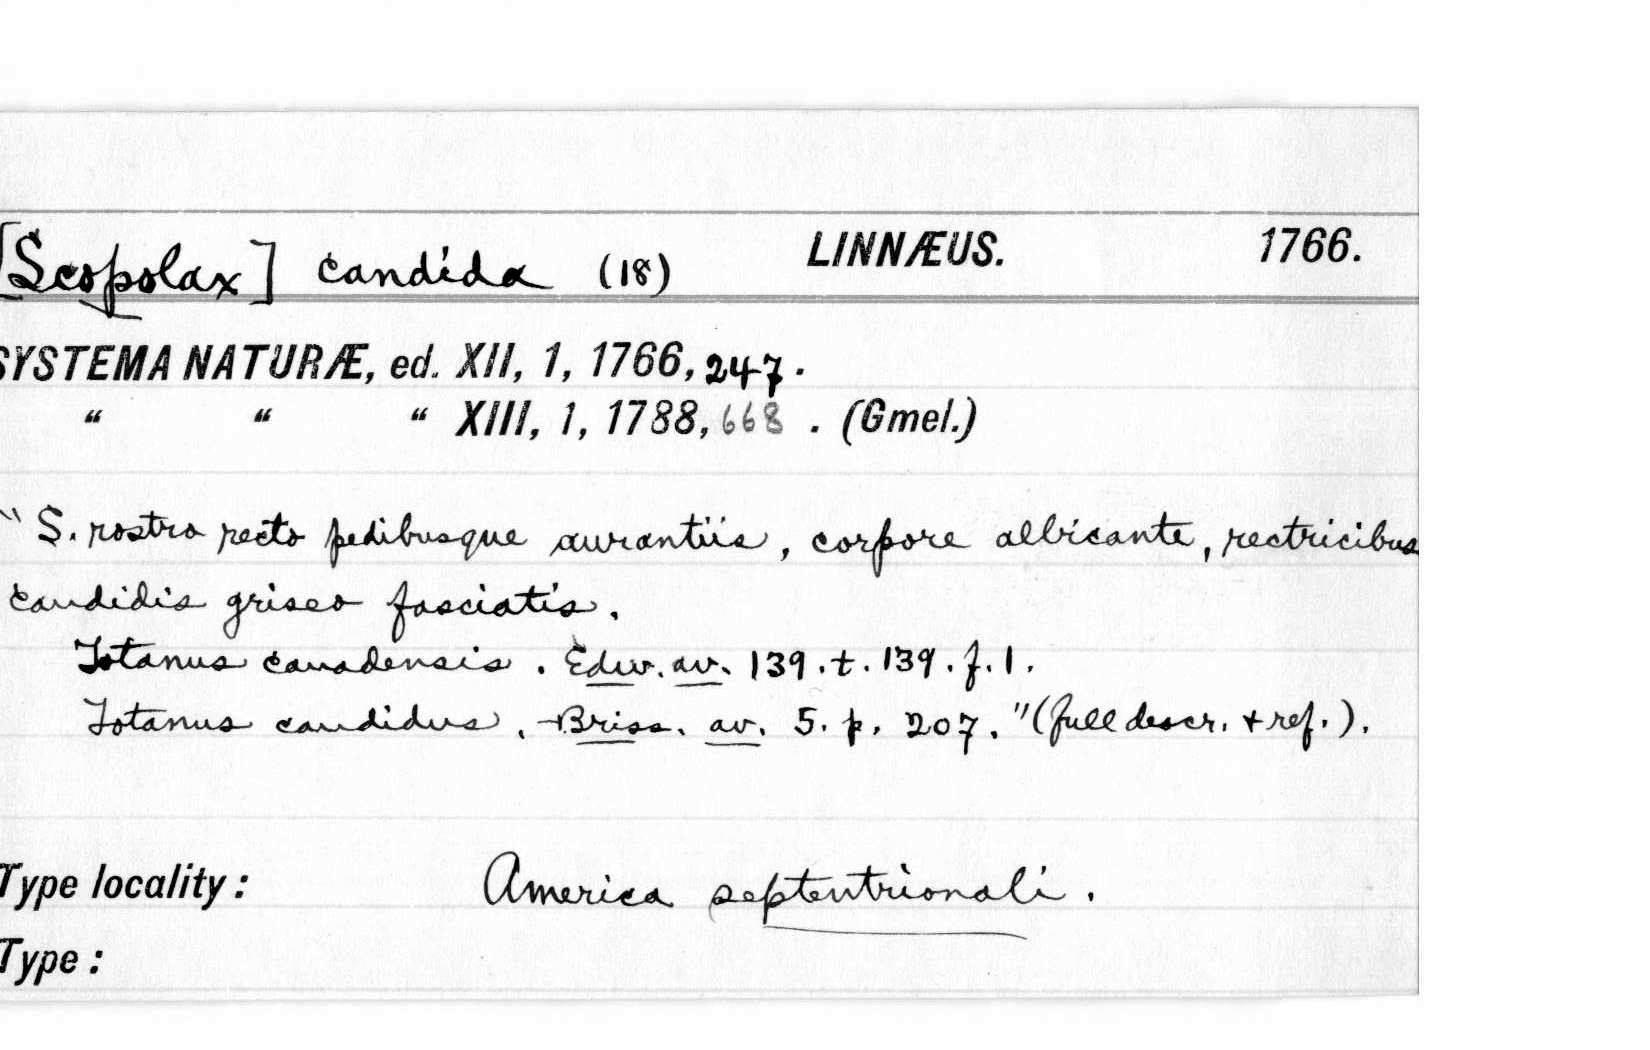 [Scopolax] candida (18) LINNÆUS. 1766.
SYSTEMA NATURÆ, ed. XII, 1, 1766, 247.
“ “ “ XIII, 1, 1788, 668. (Gmel.)
" S. rostro recto pedibusque aurantiis, corpore albicante, rectricibus
candidis griseo fasciatis.
Totanus canadensis. Edw. av. 139. t. 139. f. 1.
Totanus candidus. Briss. av. 5. p. 207." (full descr. + ref.).
Type locality: America septentrionali.
Type: